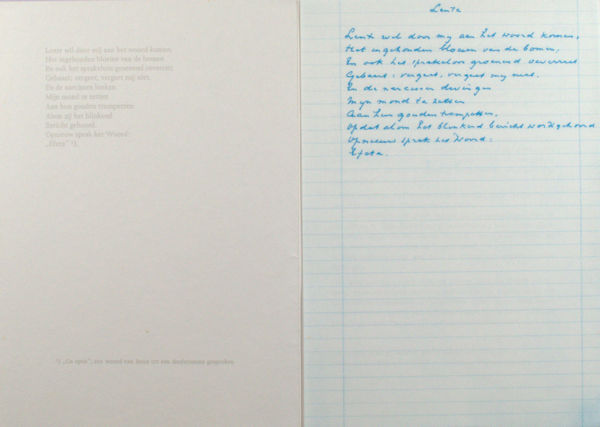 Lente wil door mij aan het woord komen,
Het ingehouden bloeien van de bomen
En ook het sprakeloos groenend
Gebaart: vergeet, vergeet mij niet.
En de narcissen
Mijn mond te zetten
Aan hun gouden trompetten
Alom zij het blinkend
Bericht gehoord.
Opnieuw sprak het Woord:
„Efeta" ¹).
¹) „Ga open", een woord van Jezus tot een doofstomme gesproken.
Lente
Lente wil door mij aan het woord komen,
Het ingehouden bloeien van de bomen,
En ook het sprakeloos groenend
Gebaart: vergeet, vergeet mij niet.
En de narcissen dwingen
Mijn mond te zetten
Aan hun gouden trompetten,
Opdat alom het blinkend bericht wordt gehoord
Opnieuw sprak het Woord:
Efeta.